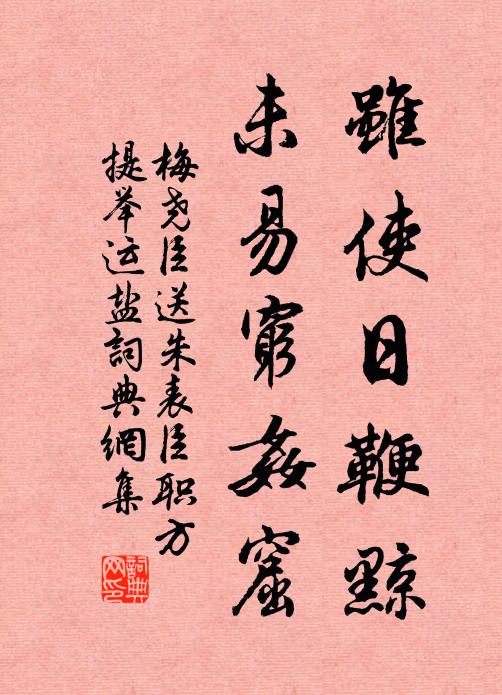 雖使日鞭黥
未易窮姦窟
梅尧臣送朱表臣职方
提举运盐詞典網集
詞典网印